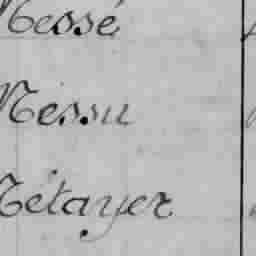 Messé
Messu
Métayer